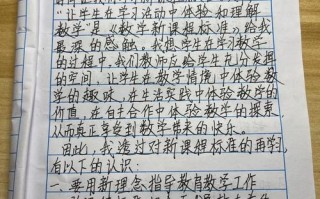 "让学生在学习活动中体验和理解
数学"是《数学新课程标准》给我
最深的感触。我想学生在学习数学
的过程中,我们教师应给学生充分发挥
的空间,让学生在数学情境中体验数
学的趣味,在生活实践中体验数学的
价值,在自主合作中体验数学的探索,
从而真正享受到数学带来的快乐。
因此,我通过对新课程标准的再学习,
有以下的认识:
一、要用新理念指导教育教学工作